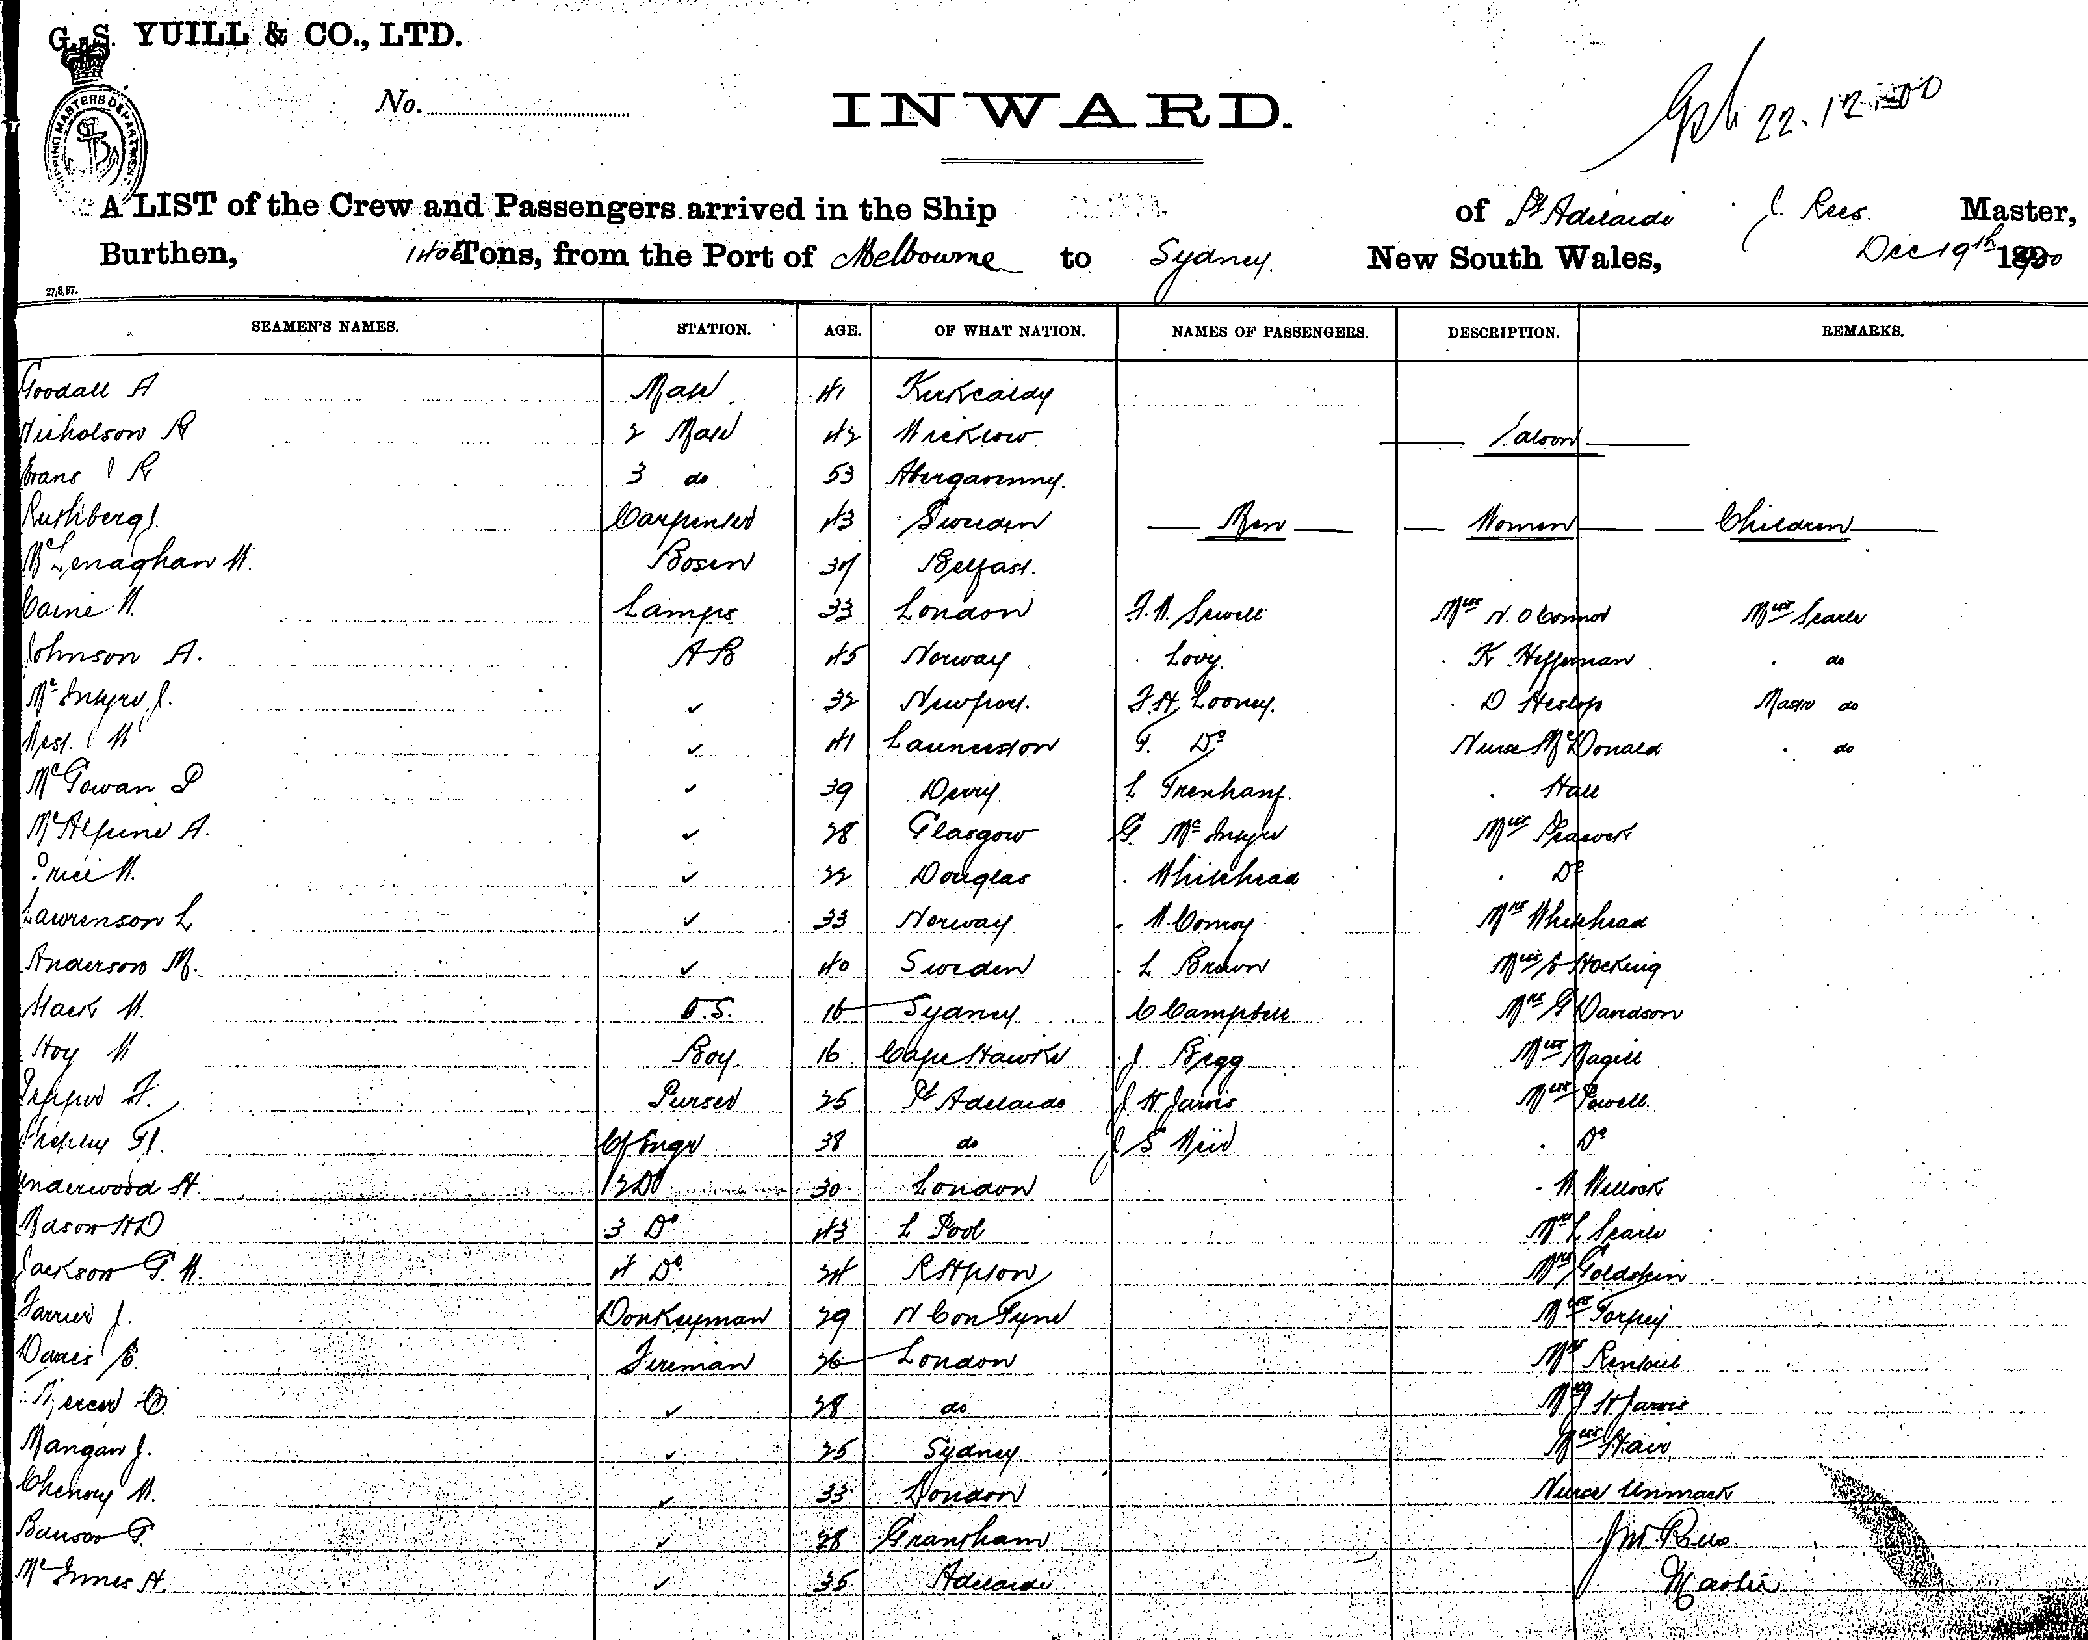 G. S. YUILL & CO., LTD.
SHIPPING MASTERS DEPARTMENT
No.
INWARD.
22.12.00
A LIST of the Crew and Passengers arrived in the Ship of Pt Adelaide J. Rees Master,
Burthen, 1406 Tons, from the Port of Melbourne to Sydney. New South Wales, Dec 19th 1900
27,8,97.
SEAMEN'S NAMES. STATION. AGE. OF WHAT NATION. NAMES OF PASSENGERS. DESCRIPTION. REMARKS.
Goodall A Mate 41 Kirkcaldy
Nicholson R 2 Mate 42 Wicklow Saloon
Evans J R 3 do 53 Abergavenny.
Ruthberg J. Carpenter 43 Sweden Men Women Children
McLenaghan W. Bosen 37 Belfast.
Caine W. Lamps 33 London F. W. Sewell Miss N. O Connor Miss Searle
Johnson A. AB 45 Norway Lovy. K Heffernan do
McIntyre J. ✓ 32 Newport. F. H. Looney. D Heslop Master do
West W ✓ 41 Launceston F. Do Nurse McDonald do
McGowan P ✓ 39 Derry L Trenham Hall
McAlpine A. ✓ 28 Glasgow G. McIntyre Miss Peacock
Price W. ✓ 22 Douglas Whitehead Do
Lawrenson L ✓ 33 Norway W. Conroy Mrs Whitehead
Anderson M. ✓ 40 Sweden L Brown Miss Hocking
Mack W. O.S. 16 Sydney C Campbell Mrs G Davidson
Hoy W Boy 16 Cape Hawke J Begg Miss Magill
Pepper F. Purser 25 Pt Adelaide J H Jarvis Miss Powell
Shepley F J. Cf Engr 38 do J S Weir Do
Underwood H. 2 Do 30 London W Willock
Mason H D 3 Do 43 L Pool Mrs L Searle
Jackson G. W. 4 Do 24 R Hpton Mrs Goldstein
Farrier J. Donkeyman 29 N C on Tyne Miss Torpey
Davis C. Fireman 26 London Mrs
Mercer C. ✓ 28 do Mrs J H Jarvis
Mangan J. ✓ 25 Sydney Miss Hair
Chenery W. ✓ 33 London Nurse Unmack
G. ✓ 28 Grantham Jno Rees
McInnes A. ✓ 35 Adelaide Master